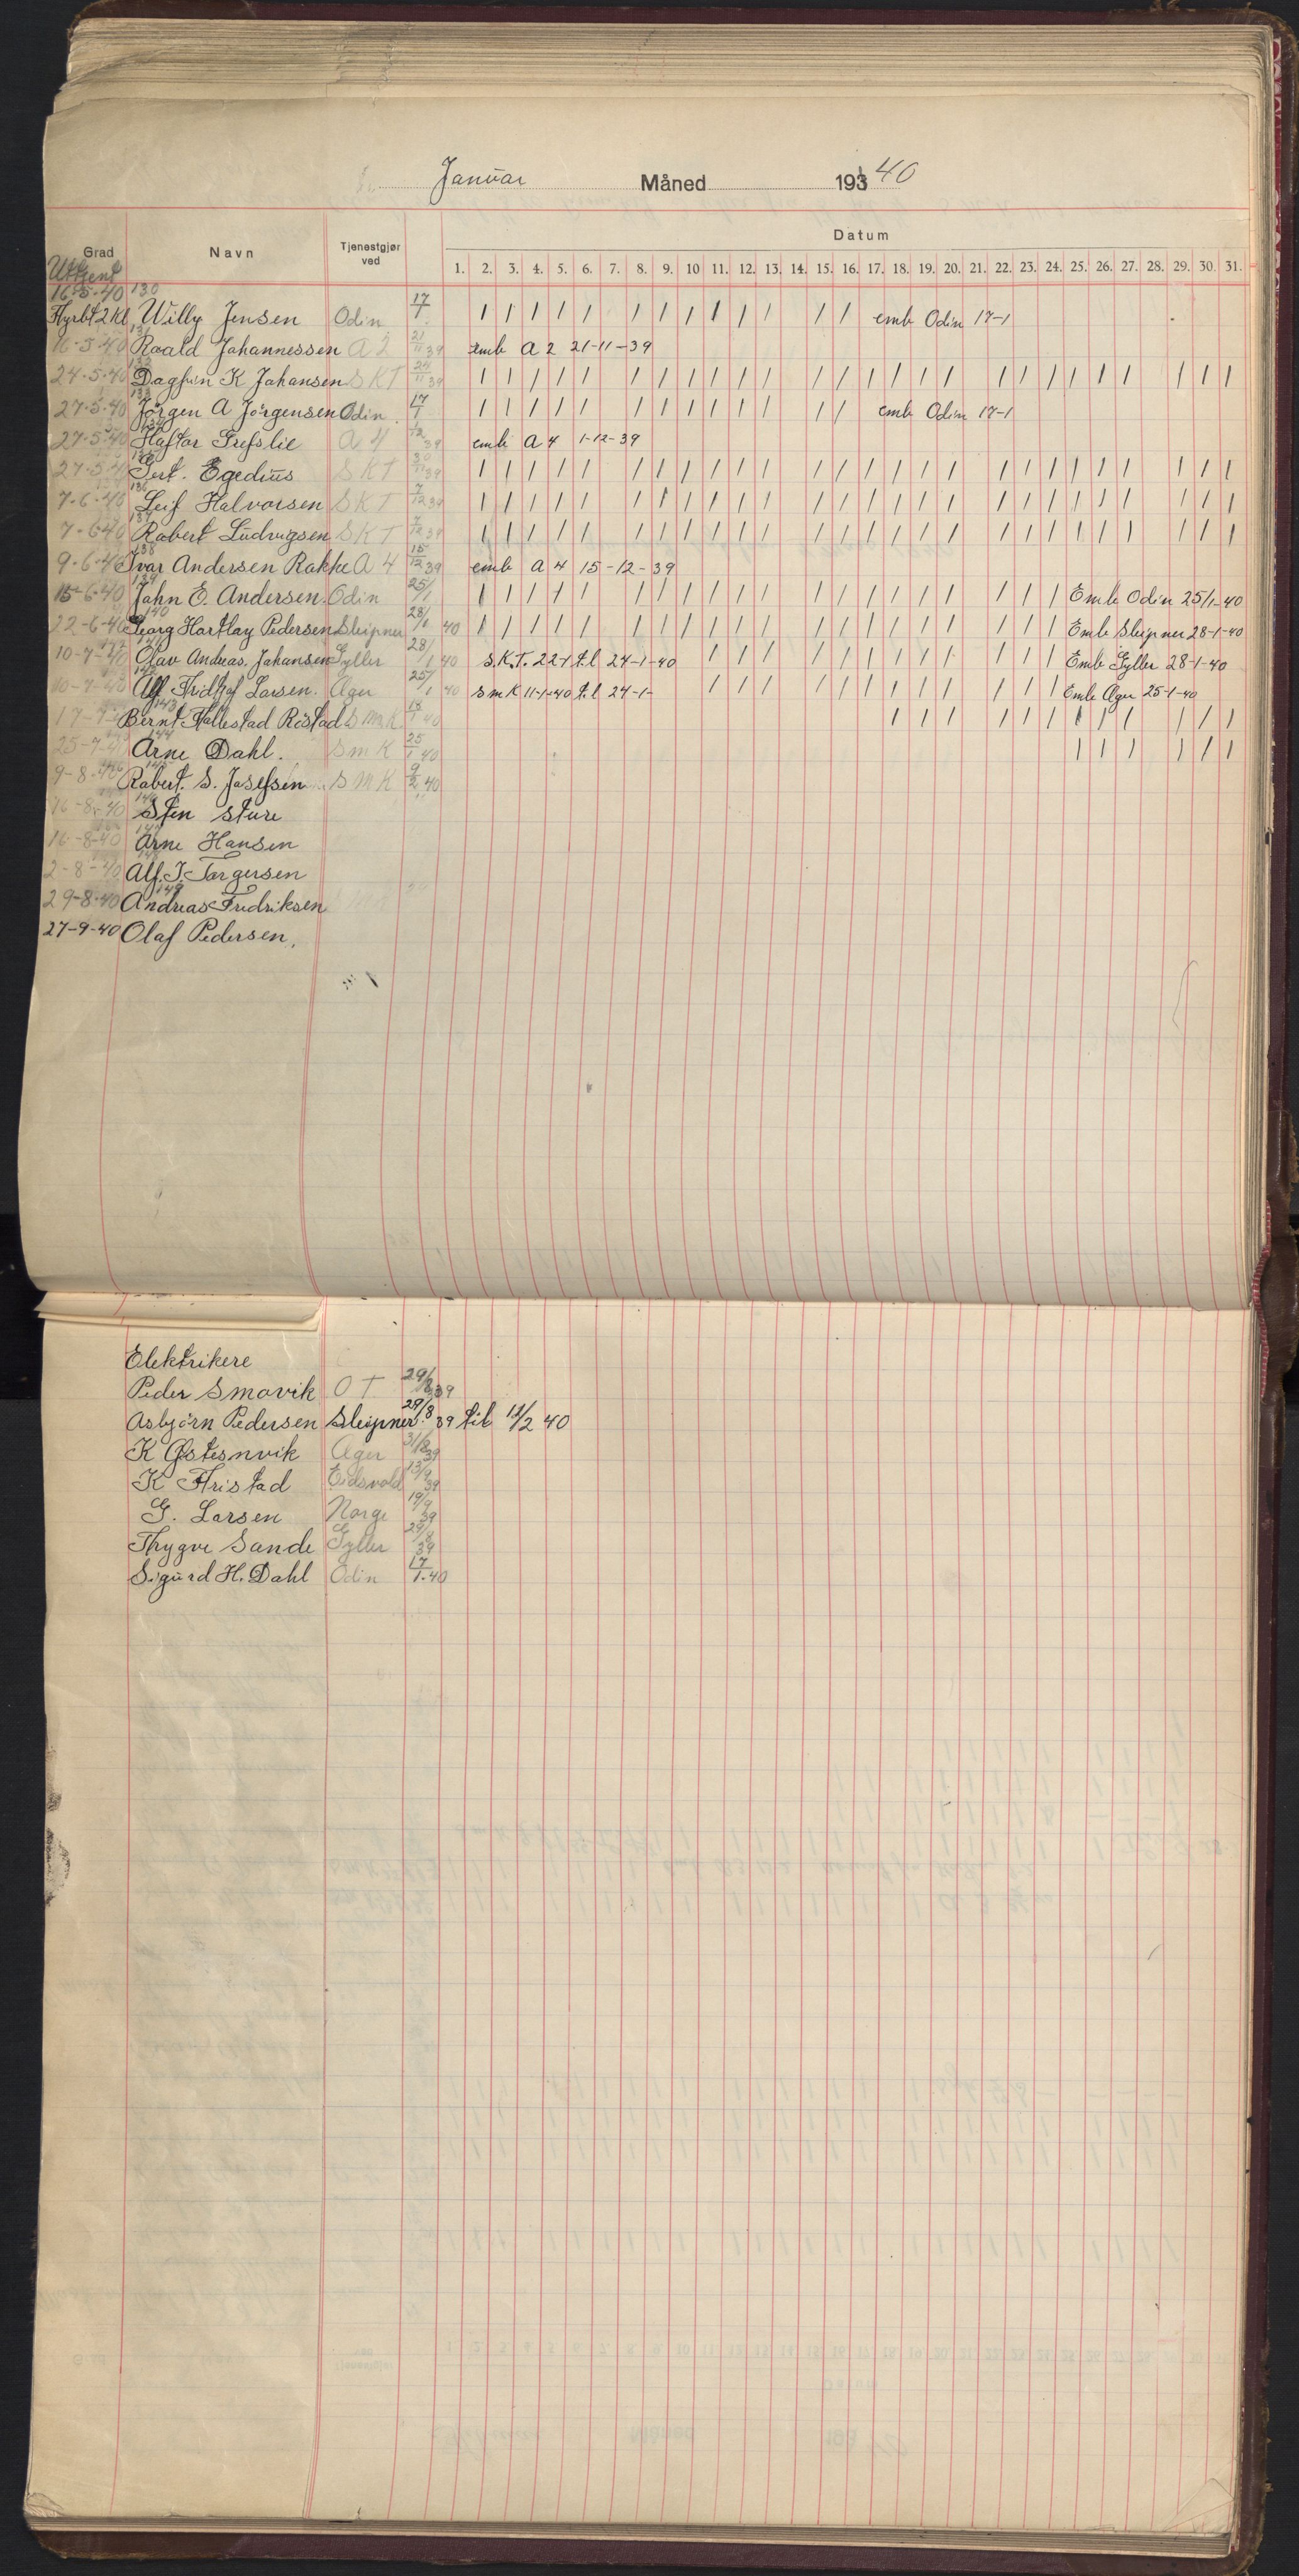 Januar Måned 193 40
Grad Navn Tjenestgjør ved Datum
1. 2. 3. 4. 5. 6. 7. 8. 9. 10 11. 12. 13. 14. 15. 16. 17. 18. 19. 20. 21. 22. 23. 24. 25. 26. 27. 28. 29. 30. 31.
16-5-40 130
Fyrbt 2 Kl Willy Jensen Odin 17/1 / / / / / / / / / / / / / emb Odin 17-1
16-5-40 131 Roald Johannessen A 2 21/11 39 emb A 2 21-11-39
24-5-40 132 Dagfin K Johansen S K T 24/11 39 / / / / / / / / / / / / / / / / / / / / / / / / / /
27-5-40 133 Jörgen A Jörgensen Odin 17/1 / / / / / / / / / / / / / emb Odin 17-1
27-5-40 134 Haftor Grefslie A 4 1/12 39 emb A 4 1-12-39
27-5-4 Gert. Egedius S K T 30/11 39 / / / / / / / / / / / / / / / / / / / / / / / / / /
7-6-40 136 Leif Halvorsen S K T 7/12 39 / / / / / / / / / / / / / / / / / / / / / / / / / /
7-6-40 137 Robert Ludvigsen S K T 7/12 39 / / / / / / / / / / / / / / / / / / / / / / / / / /
9-6-40 138 Ivar Andersen Rakke A 4 15/12 39 emb A 4 15-12-39
15-6-40 139 John E. Andersen. Odin 25/1 / / / / / / / / / / / / / / / / / / / / Emb Odin 25/1-40
22-6-40 140 Georg Hartlay Pedersen Sleipner 28/1 40 / / / / / / / / / / / / / / / / / / / / Emb Sleipner 28-1-40
10-7-40 Olav Andreas. Johansen Gyller 28/1 40 S.K.T. 22-1 til 24-1-40 / / / / / / / / / / / / Emb Gyller 28-1-40
10-7-40 Alf Fridtjof Larsen. Æger 25/1 40 S m K 11-1-40 til 24-1- / / / / / / / / / / / / Emb Æger 25-1-40
143 Bernt Hallestad Röstad S M K 18/1 40 / / / / / / / / / / / /
25-7-40 144 Arne Dahl. S m K 25/1 40 / / / / / /
9-8-40 Robert. S. Josefsen S M K 9/2 40
16-8-40 146 Sten Sture
16-8-40 Arne Hansen
2-8-40 Alf. J. Torgersen
29-8-40 149 Andreas Fredriksen
27-9-40 Olaf Pedersen.
Elektrikere
Peder Smovik O T 29/8 39
Asbjörn Pedersen Sleipner 29/8 39 til 12/2 40
K Østesnvik Æger 31/8 39
K Fristad Eidsvold 13/9 39
G. Larsen Norge 19/9 39
Thygve Sande Gyller 29/8 39
Sigurd H. Dahl Odin 17/1.40